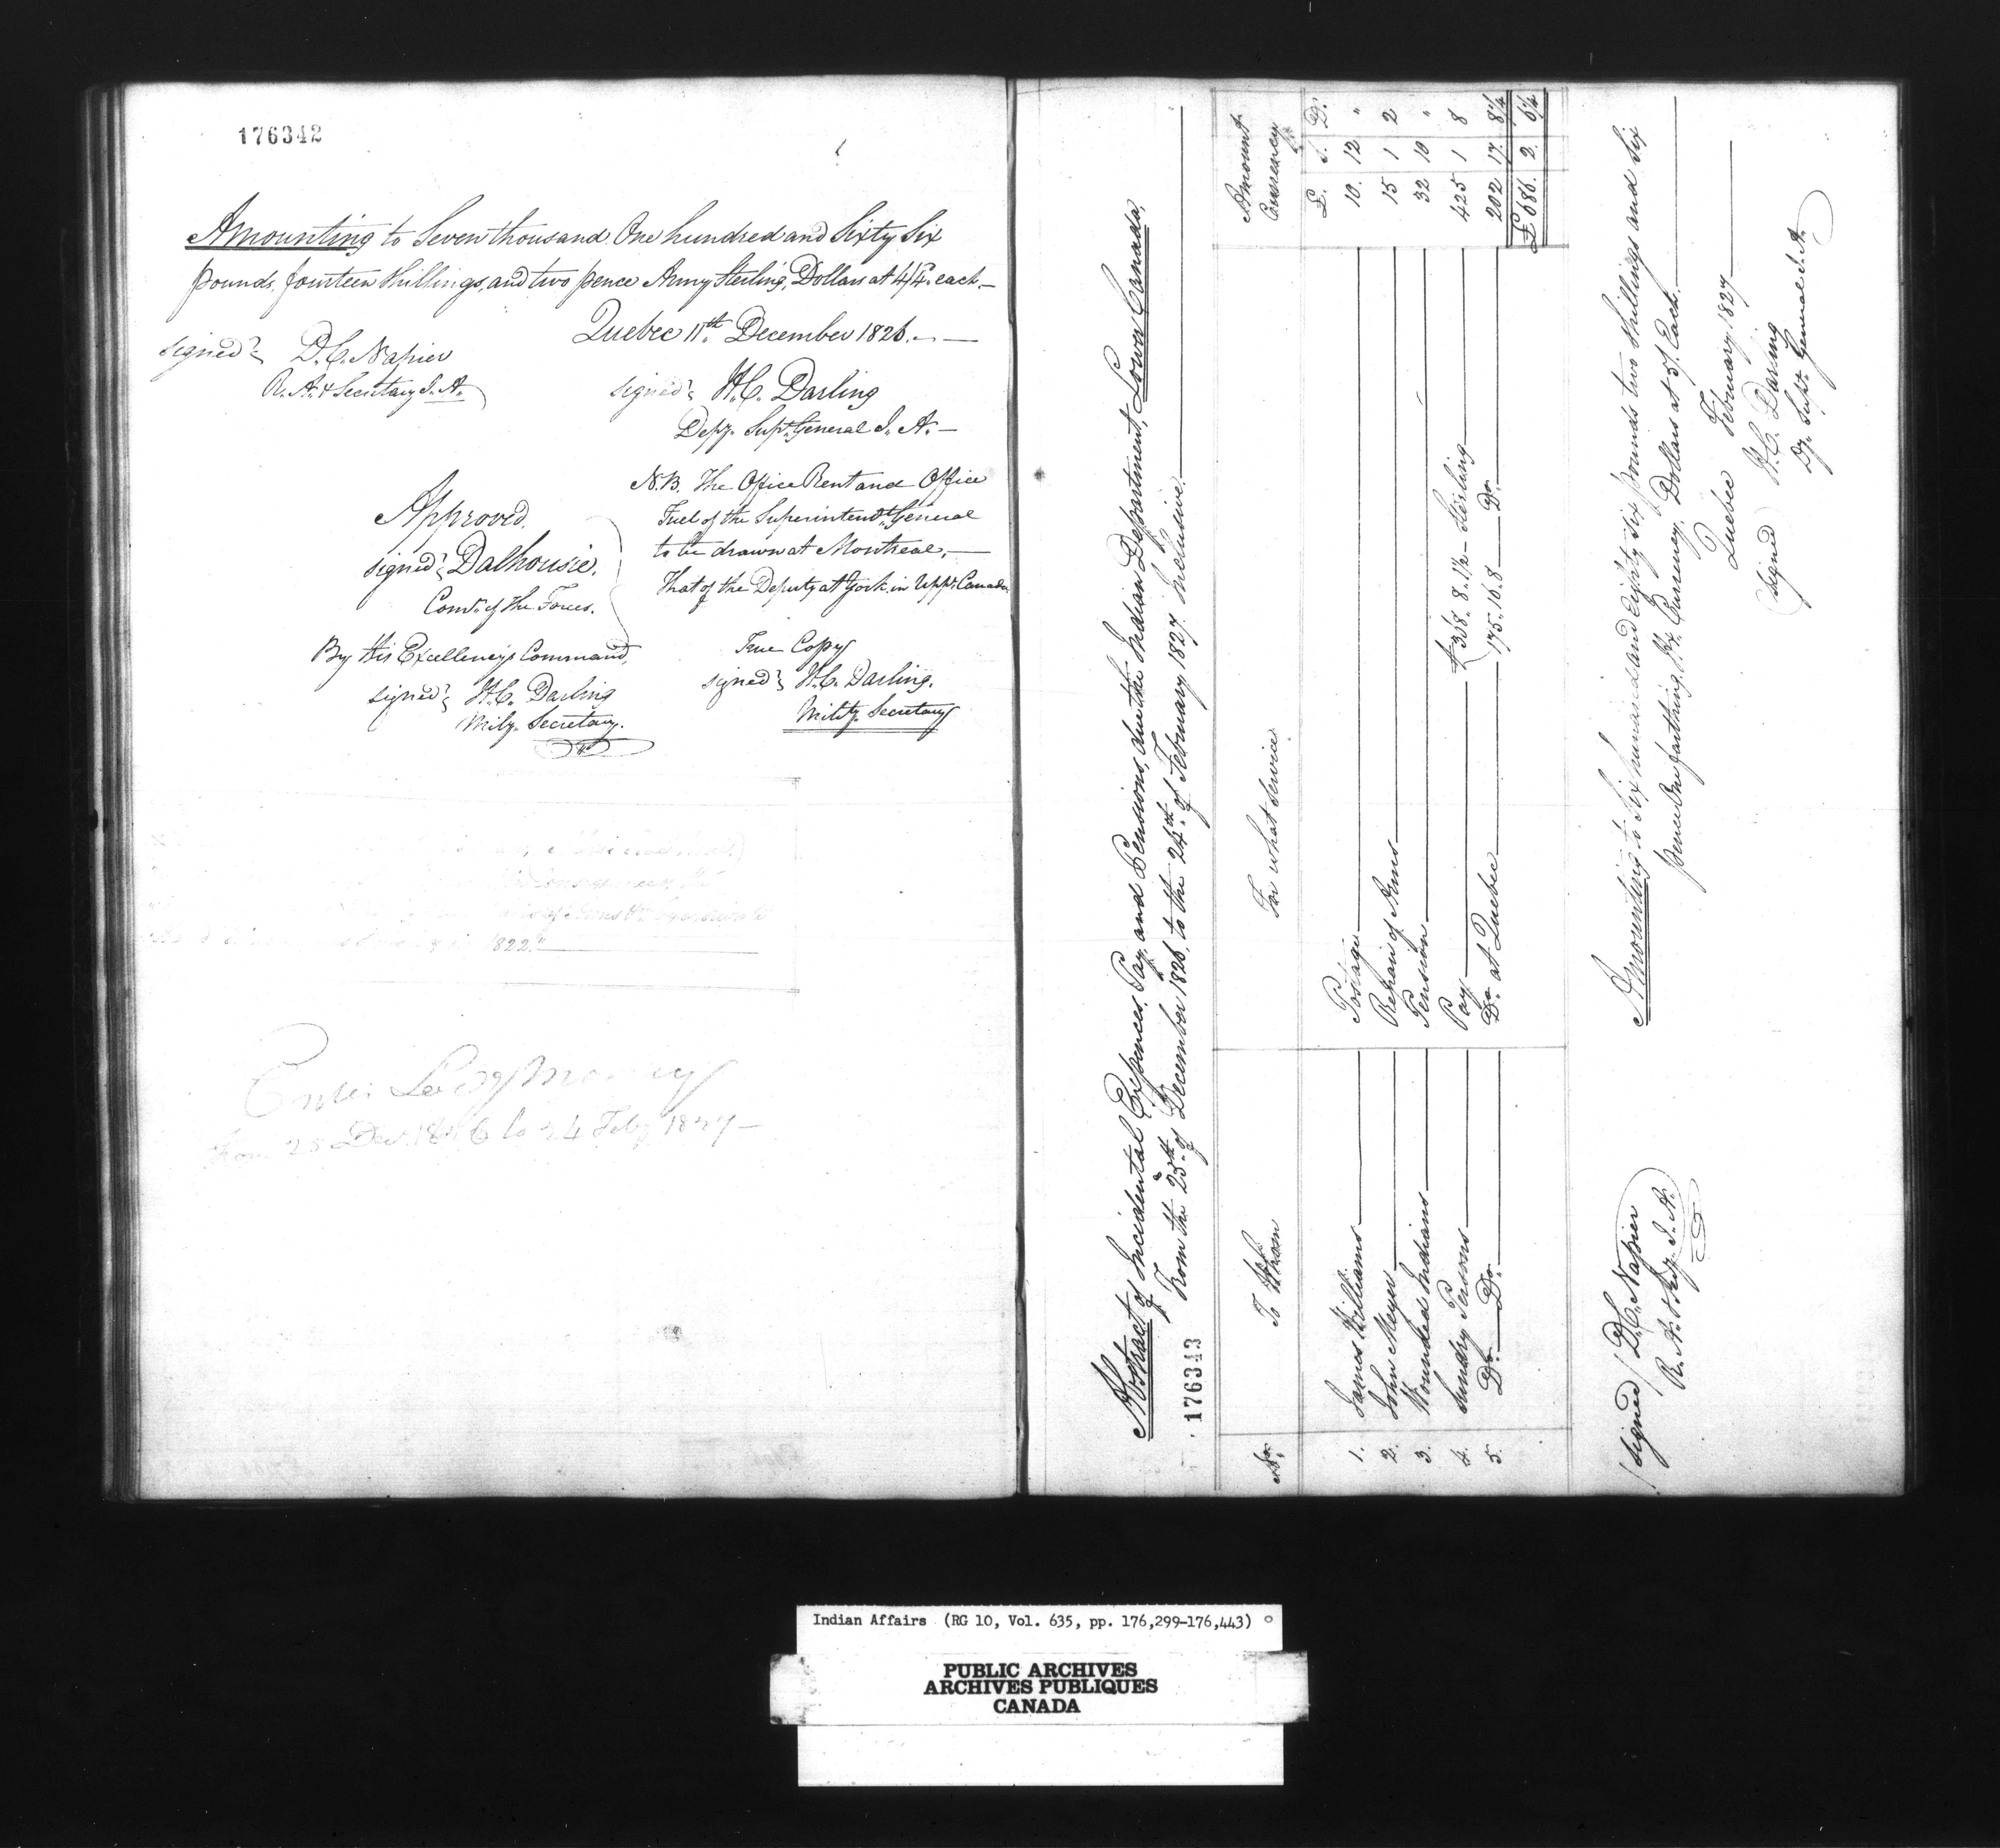 176342
Amounting to Seven thousand One hundred and Sixty Six
pounds, fourteen Shillings, and two pence Army Sterling, Dollars at 4/4 each.—
Quebec 11th December 1826.—
signed D.C. Napier
R. A. & Secretary I. A.
signed H.C. Darling
Depy. Supt. General I. A.—
Approved.
signed Dalhousie.
Comr. of the Forces.
By His Excellency's Command,
signed H.C. Darling
Mily. Secretary.
N.B. The Office Rent and Office
Fuel of the Superintendt. General
to be drawn at Montreal.—
That of the Deputy at York in Uppr. Canada
True Copy
signed H.C. Darling.
Milty. Secretary
1822."
from 25 Decr. 1826 to 24 Feby 1827—
Abstract of Incidental Expences, Pay, and Pensions, due the Indian Department, Lower Canada,
From the 25th of December 1826, to the 24th of February 1827 Inclusive.
176343
No. To Whom For what Service Amount Currency
£. S. D.
1. James Williams Postage 10. 12 "
2. John Meyer Repair of Arms 15 1 2
3. Wounded Indians Pension 32 10 "
4. Sundry Persons Pay £368. 8. 1½ Sterling 425 1 8
5. Do. Do. Do. at Quebec 175. 16. 8 Do. 202 17. 8¼
£686. 2. 6¼
Amounting to Six hundred and Eighty six pounds two Shillings and Six
pence One farthing, Hx. Currency, Dollars at 5/. Each.—
Quebec February 1827
(signed) D.C. Napier
R. A. & Secy. I. A.
(signed) H.C. Darling
Dy. Supt. General I. A.
Indian Affairs (RG 10, Vol. 635, pp. 176,299-176,443)
PUBLIC ARCHIVES
ARCHIVES PUBLIQUES
CANADA